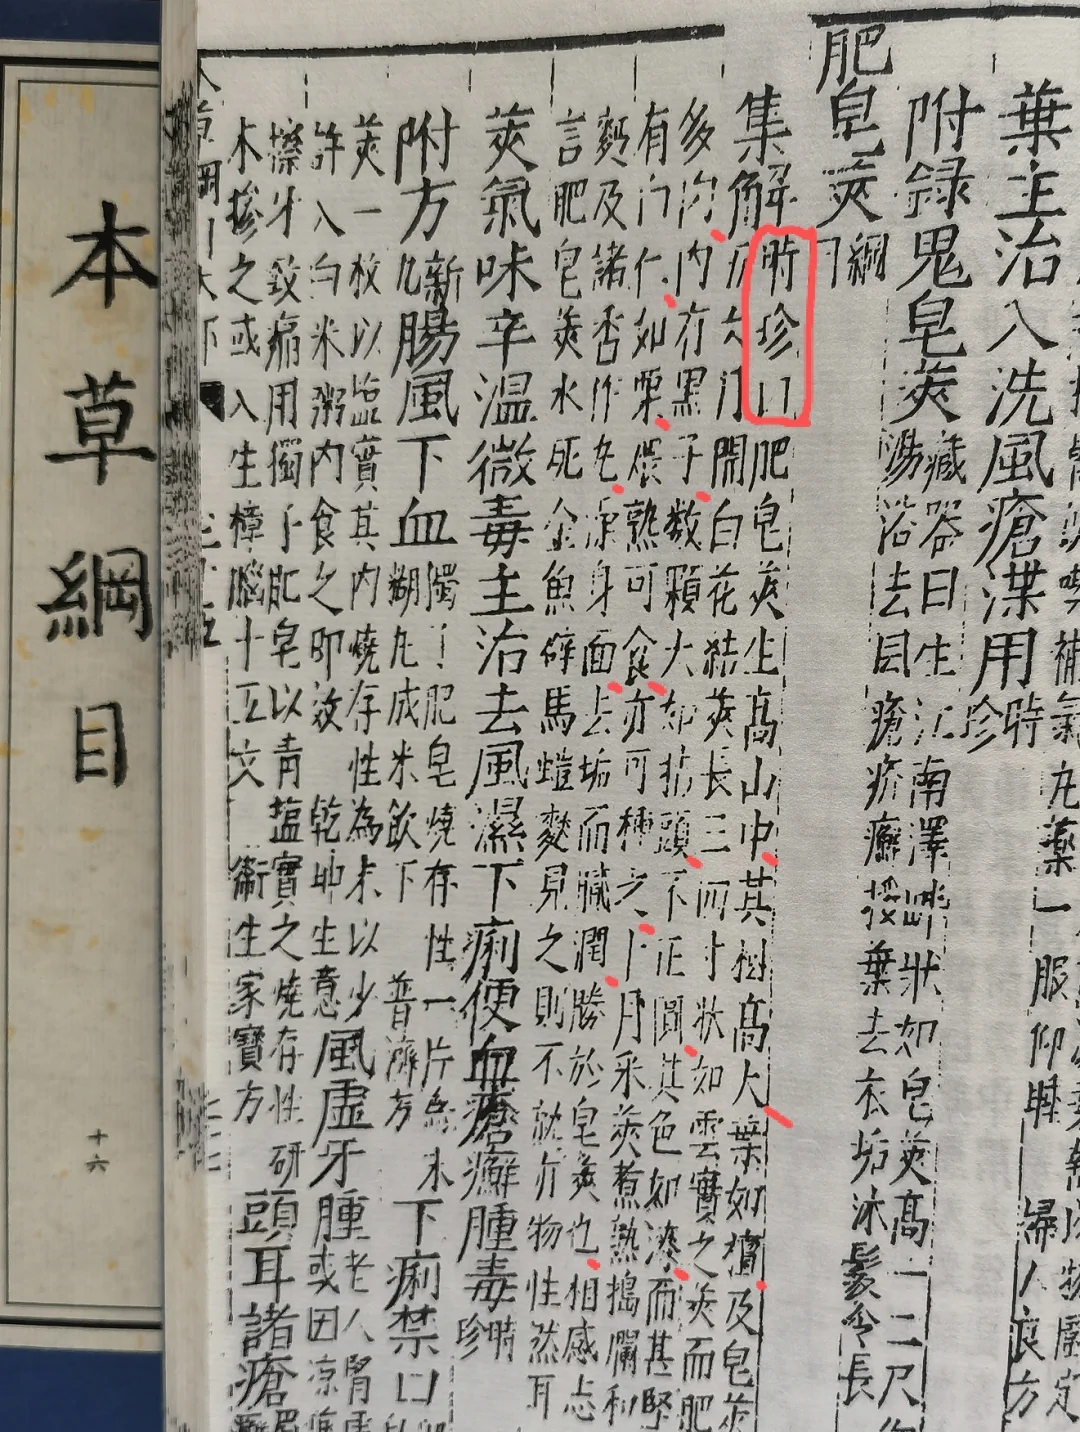 補氣
丸藥一服仰睡
婦人良方
葉主治入洗風瘡渫用時珍
附録鬼皂莢
藏器曰生江南澤畔狀如皂莢高一二尺
湯浴去瘡疥癬挼葉去衣垢沐髮令長
肥皂莢
綱目
集解
時珍曰肥皂莢生高山中其樹高大葉如檀及皂莢
六月開白花結莢長三四寸狀如雲實之莢而肥
多肉內有黑子數顆大如指頭不正圓其色如漆而甚堅
有白仁如栗煨熟可食亦可種之十月采莢煮熟搗爛和
麪及諸香作丸澡身面去垢而膩潤勝於皂莢也相感志
言肥皂莢水死金魚辟馬螘麩見之則不就亦物性然耳
莢氣味辛溫微毒主治去風濕下痢便血瘡癬腫毒時珍
附方
新九
腸風下血
獨子肥皂燒存性一片為末
糊丸成米飲下 普濟方
下痢禁口
莢一枚以鹽實其內燒存性為末以少
許入白米粥內食之即效 乾坤生意
風虛牙腫
老人腎虛
或因涼藥
擦牙致痛用獨子肥皂以青鹽實之燒存性研
末摻之或入生樟腦十五文 衛生家寶方
頭耳諸瘡
本草綱目
十六